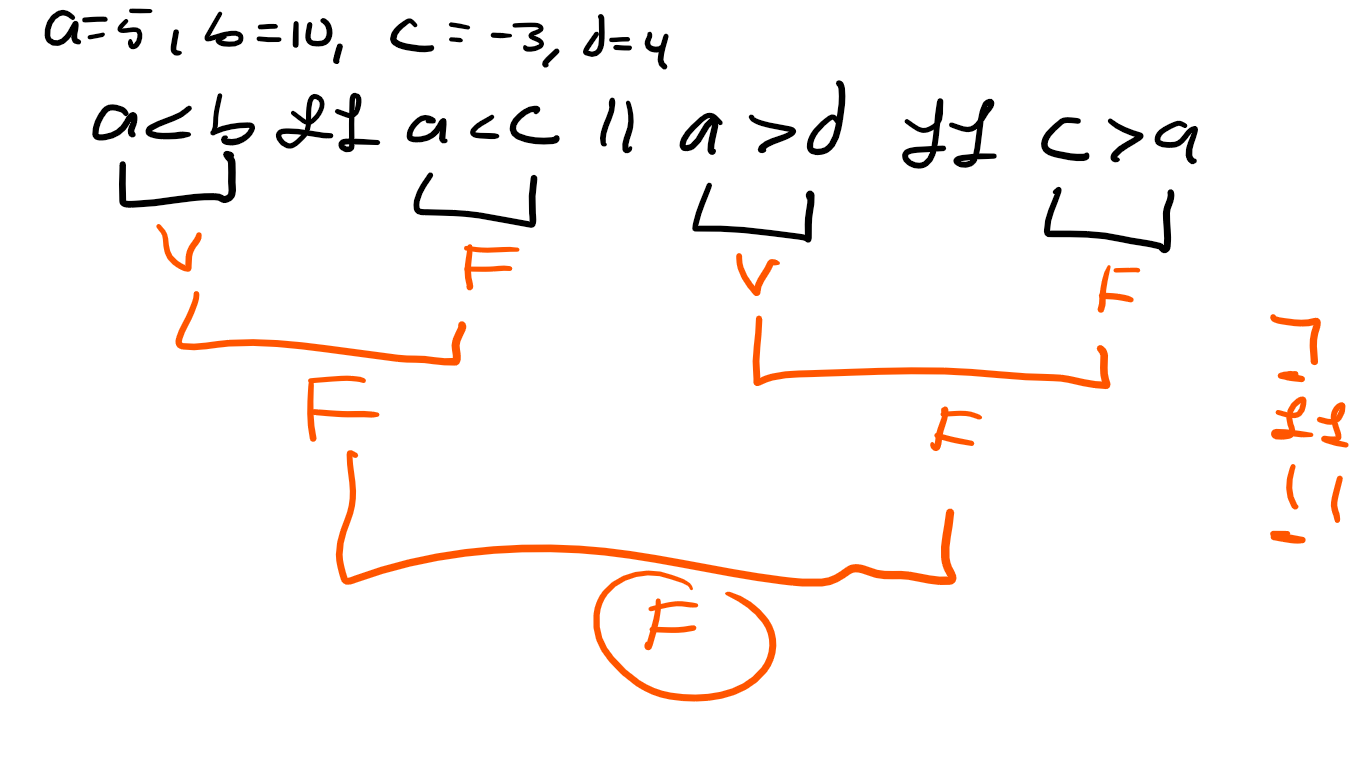 a=5, b=10, c=-3, d=4
a<b && a<c || a>d && c>a
V F V F
F F
F
¬
-
&&
||
-